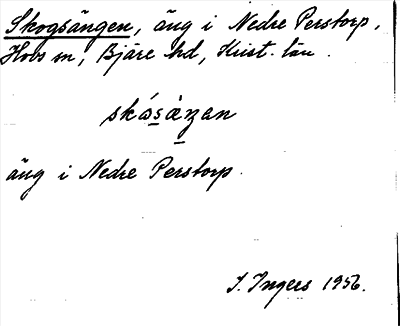 Skogsängen, äng i Nedre Perstorp,
Hovs sn, Bjäre hd, Krist. län.
äng i Nedre Perstorp.
I. Ingers 1956.